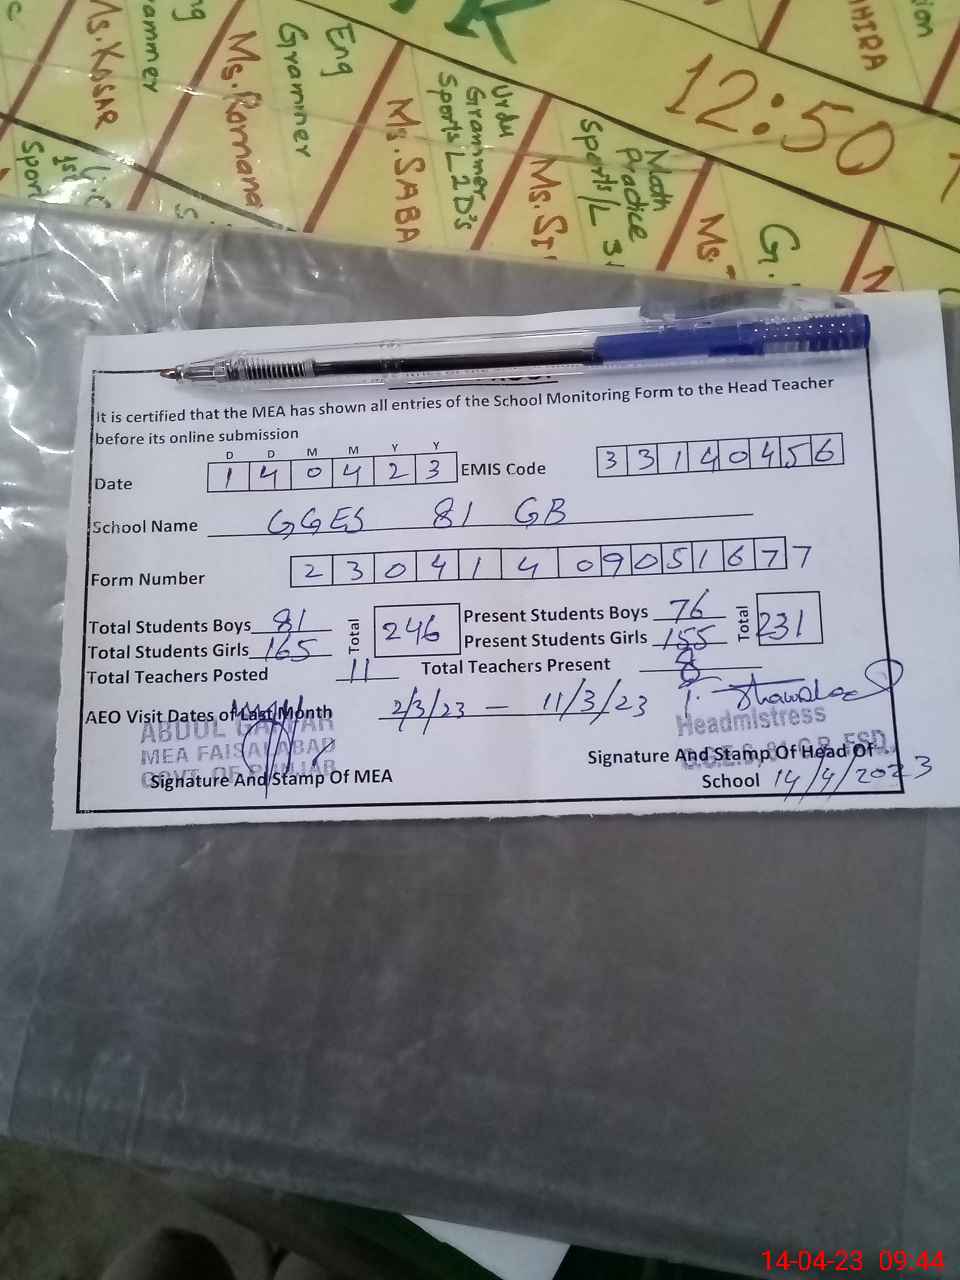 Eng
Grammer
Ms. KASAR
Ms. Romana
Urdu
Grammer
Sports L 2 D's
Ms. SABA
Math
Practice
Sports/L 3
12:50
It is certified that the MEA has shown all entries of the School Monitoring Form to the Head Teacher
before its online submission
D D M M Y Y
Date 1 4 0 4 2 3 EMIS Code 3 3 1 4 0 4 5 6
School Name GGES 81 GB
Form Number 2 3 0 4 1 4 0 9 0 5 1 6 7 7
Total Students Boys 81 Total 246 Present Students Boys 76 Total 231
Total Students Girls 165 Present Students Girls 155
Total Teachers Posted 11 Total Teachers Present 8
AEO Visit Dates of Last Month 2/3/23 — 11/3/23
ABDUL
MEA FAISALABAD
GOVT. OF PUNJAB
Signature And Stamp Of MEA
Headmistress
G.G.E.S. 81 G.B. FSD.
Signature And Stamp Of Head Of
School 14/4/2023
14-04-23 09:44